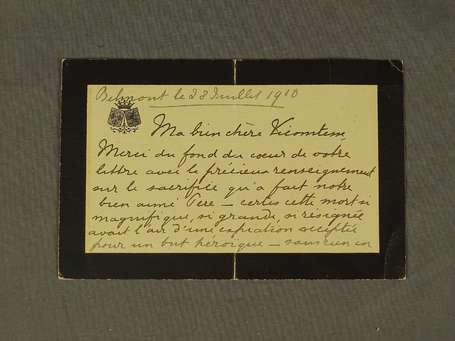 Belmont le 28 Juillet 1910
Ma bien chère Vicomtesse
Merci du fond du cœur de votre
lettre avec le précieux renseignement
sur le sacrifice qu'a fait notre
bien aimé Père — certes cette mort si
magnifique, si grande, si resignée
avait l'air d'une expiation acceptée
pour un but héroïque — sans rien en